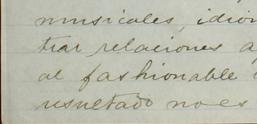 musicales, idiom
trar relaciones a
al fashionable
resultado no es